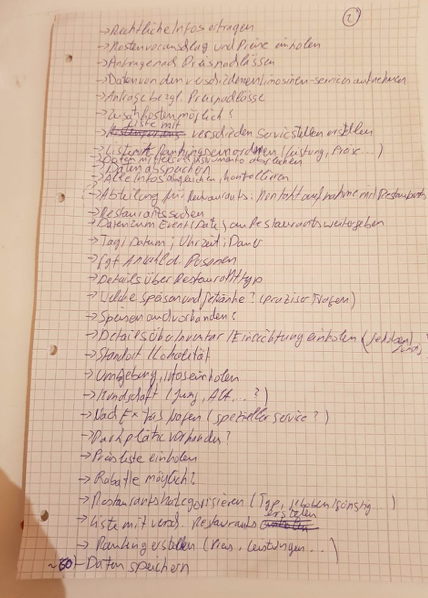 2
→ Rechtliche Infos erfragen
→ Kostenvoranschlag und Preise einholen
→ Anfrage nach Preisnachlässen
→ Daten von den verschiedenen Limosinen-services aufnehmen
→ Anfrage bezgl. Preisnachlässe
→ Zusatzkosten möglich?
→ Liste mit verschieden Servicestellen erstellen
→ Liste mit Ranking (Leistung, Preise...)
→ Daten abspeichern
→ Alle Infos kontrollieren
→ Abteilung für Restaurants: Kontaktaufnahme mit Restaurants
→ Restaurants suchen
→ Daten zum Event (Date) an Restaurants weitergeben
→ Tag, Datum, Uhrzeit, Dauer
→ Ggf. Anzahl d. Personen
→ Details über Restauranttyp
→ Welche speisen und getränke? (präzise Fragen)
→ Speisen auch vorhanden?
→ Details über Inventar / Einrichtung einholen
→ Standort / Lokalität
→ Umgebung, Infos einholen
→ Kundschaft (Jung, Alt...?)
→ Nach Extras fragen (spezieller service?)
→ Parkplätze vorhanden?
→ Preisliste einholen
→ Rabatte möglich?
→ Restaurants kategorisieren (Typ, gehoben/günstig...)
→ Liste mit versch. Restaurants erstellen
→ Ranking erstellen (Preis, Leistungen...)
~60 - Daten speichern